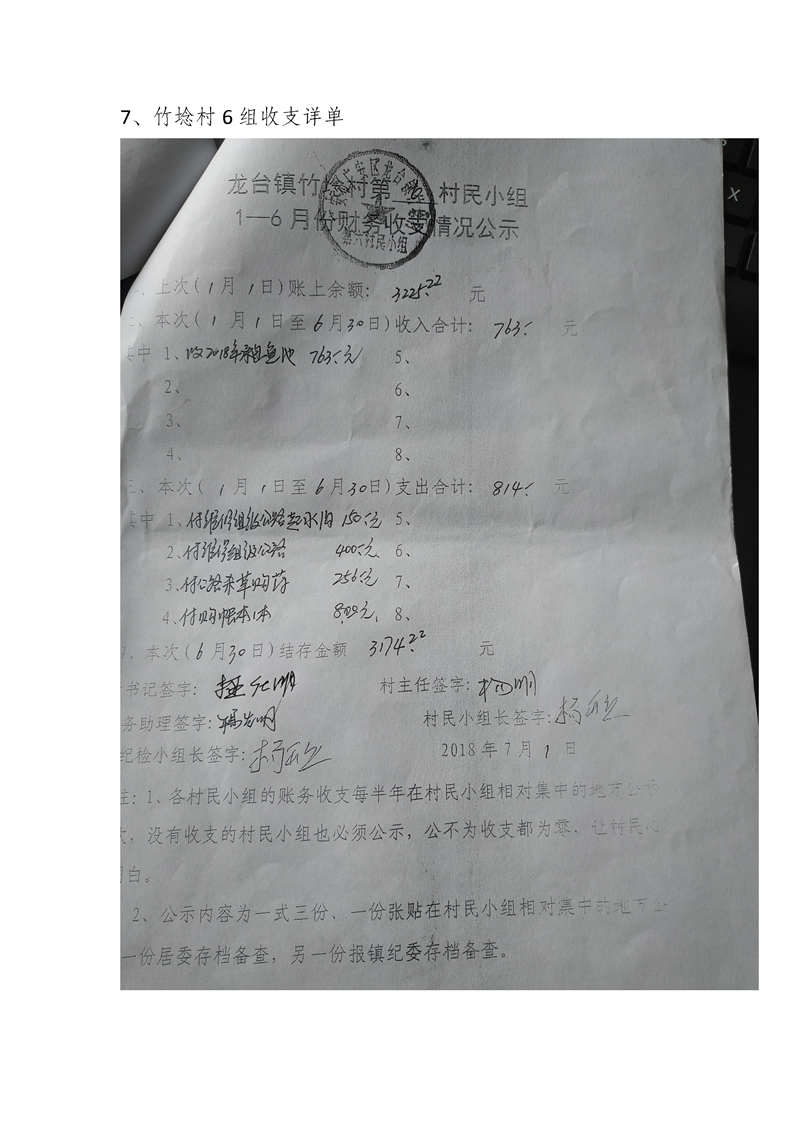 7、竹埝村 6 组收支详单
龙台镇竹 村第 6 村民小组
1—6 月份财务收支情况公示
广安区龙台镇
第六村民小组
、上次( 1月 1日)账上余额: 3225.22 元
二、本次( 1 月 1 日至 6 月 30 日)收入合计: 763.- 元
其中 1、收2018年 鱼池 763.-元 5、
2、 6、
3、 7、
4、 8、
三、本次( 1 月 1 日至 6 月 30 日)支出合计: 814.- 元
其中 1、付维修组级公路 水沟 150.-元 5、
2、付维修组级公路 400.-元、 6、
3、付公路杀草购药 256.-元 7、
4、付购帐本1本 8.00元、 8、
、本次( 6 月 30 日)结存金额 3174.22 元
书记签字: 村主任签字: 杨 明
务助理签字: 杨 明 村民小组长签字: 杨
纪检小组长签字: 杨 2018 年 7 月 1 日
注: 1、各村民小组的账务收支每半年在村民小组相对集中的地方公
次, 没有收支的村民小组也必须公示, 公不为收支都为零、让村民心
明白。
2、公示内容为一式三份、一份张贴在村民小组相对集中的地方公
一份居委存档备查, 另一份报镇纪委存档备查。